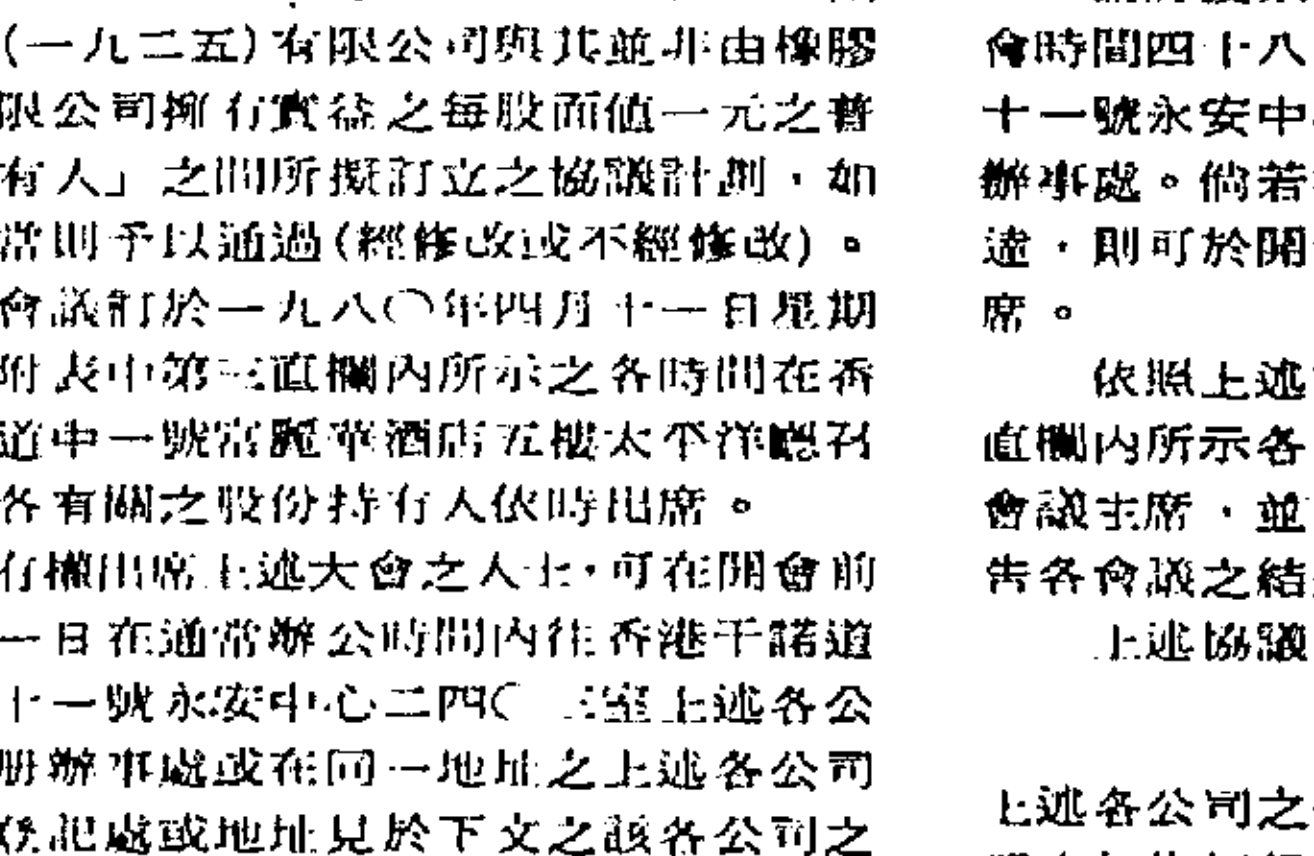 (一九二五)有限公司與其並非由橡膠
限公司擁有實益之每股面值一元之普
有人」之間所擬訂立之協議計劃，如
當則予以通過(經修改或不經修改)。
會議訂於一九八〇年四月十一日星期
附表中第三直欄內所示之各時間在香
道中一號富麗華酒店五樓太平洋廳召
各有關之股份持有人依時出席。
有權出席上述大會之人士，可在開會前
一日在通常辦公時間內往香港干諾道
十一號永安中心二四〇三室上述各公
册辦事處或在同一地址之上述各公司
記處或地址見於下文之該各公司之
會時間四十八
十一號永安中
辦事處。倘若
達，則可於開
席。
依照上述
直欄內所示各
會議主席，並
告各會議之結
上述協議
上述各公司之